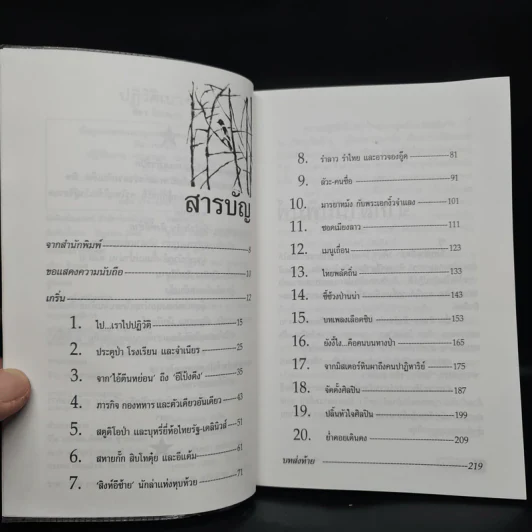 สารบัญ
จากสำนักพิมพ์ 8
ขอแสดงความนับถือ 10
เกริ่น 12
1. ไป...เราไปปฏิวัติ 15
2. ประตูป่า โรงเรียน และจำเนียร 25
3. จาก 'ไอ้ตีนหย่อน' ถึง 'อีโป้งตึง' 35
4. ภารกิจ กองทหาร และตัวเดียวอันเดียว 43
5. สดุดีโอป่า และบุหรี่ยี่ห้อไทยรัฐ-เดลินิวส์ 51
6. สหายกั๊ก สิบไทตุ้ย และอีแต้ม 61
7. 'สิงห์อีซ้าย' นักล่าแห่งทุบห้วย 71
8. รำลาว รำไทย และลาวจองอู๊ด 81
9. สัวะ-คนซื่อ 91
10. มารยาหม้ง กับพระเอกงิ้วจำแลง 101
11. ชอดเมียงลาว 111
12. เมนูเถื่อน 123
13. ไทยพลัดถิ่น 133
14. ขี้ช้วงป่าน่า 143
15. บทเพลงเลือดซิบ 153
16. ยังงี้ไง...คือคนบนทางป่า 165
17. จากมิสเตอร์หินผาถึงคนปาฏิหาริย์ 175
18. จัดตั้งศิลปิน 187
19. ปลิ้นหัวใจศิลปิน 199
20. ย่ำดอยเดินดง 209
บทส่งท้าย 219